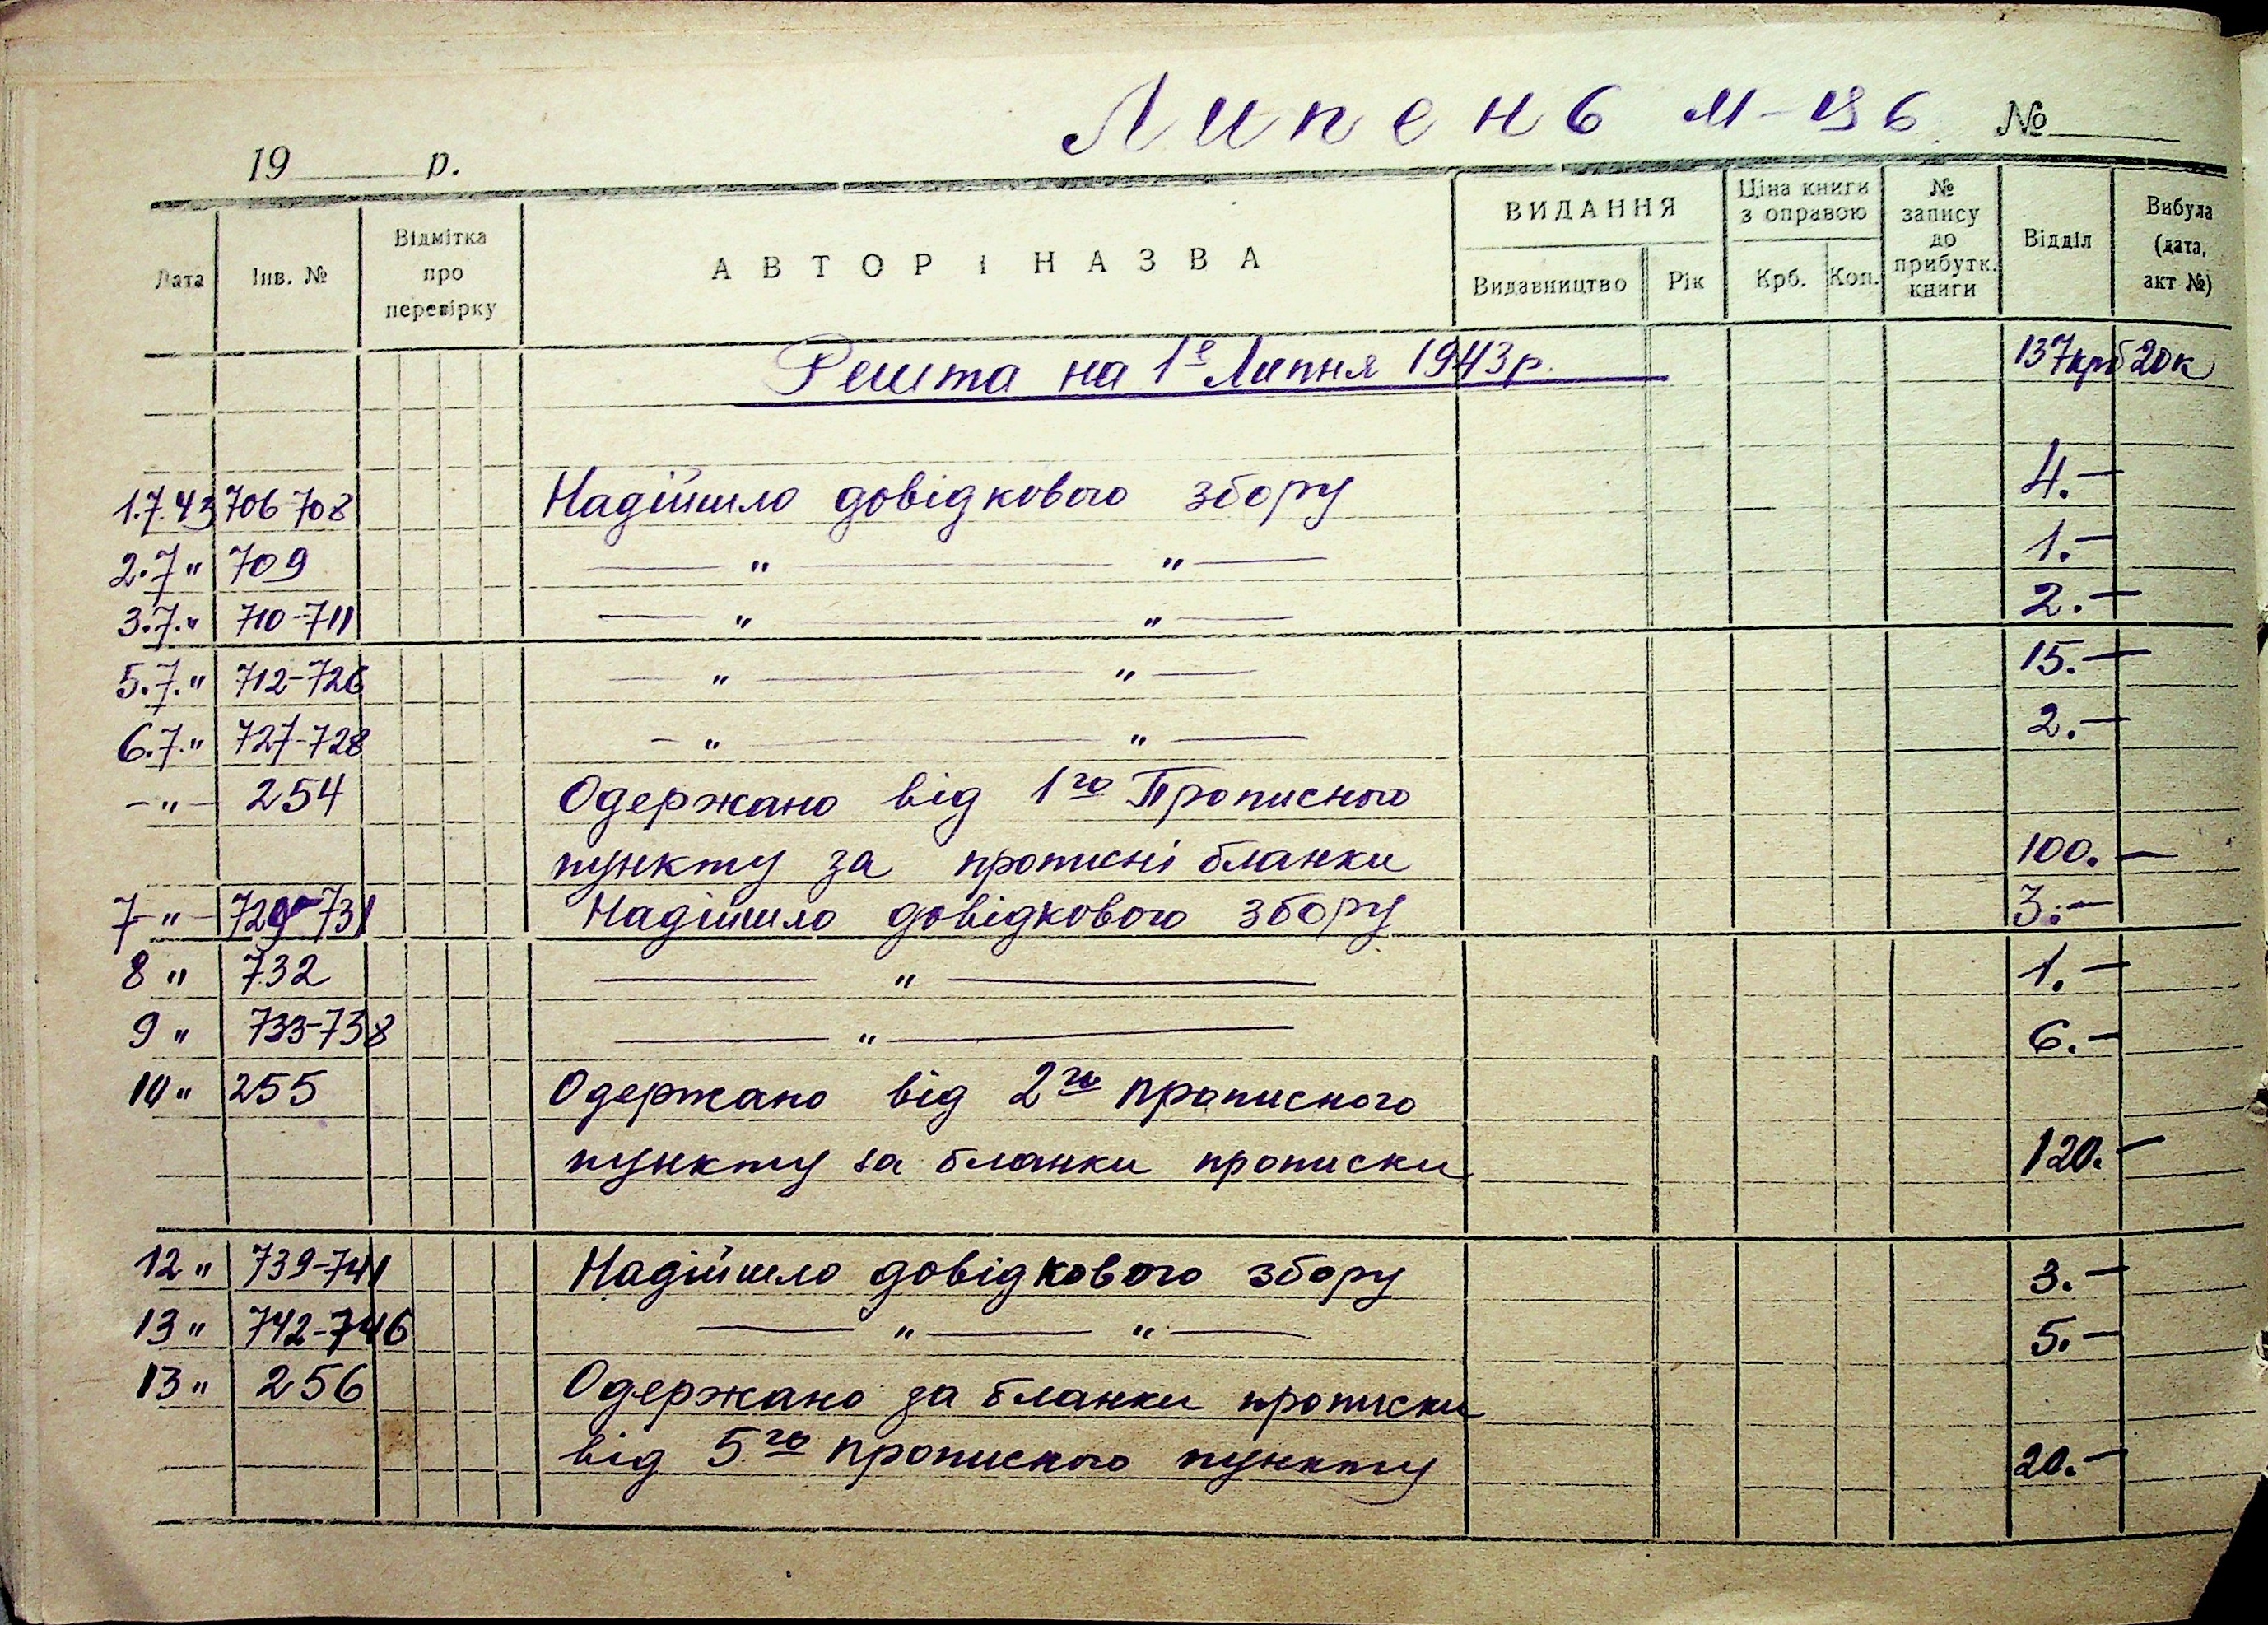 Липень м-ць №
19 р.
Дата Інв. № Відмітка про перевірку АВТОР І НАЗВА ВИДАННЯ Видавництво Рік Ціна книги з оправою Крб. Коп. № запису до прибутк. книги Відділ Вибула (дата, акт №)
Решта на 1е Липня 1943 р. 137крб 20к
1.7.43 706-708 Надійшло довідкового збору 4.—
2.7 " 709 — " — " — 1.—
3.7. " 710-711 — " — " — 2.—
5.7. " 712-726 — " — " — 15.—
6.7. " 727-728 — " — " — 2.—
— " — 254 Одержано від 1го Прописного
пункту за прописні бланки 100.—
7 — " — 729-731 Надійшло довідкового збору 3.—
8 " 732 — " — 1.—
9 " 733-738 — " — 6.—
10 " 255 Одержано від 2го прописного
пункту за бланки прописки 120.—
12 " 739-741 Надійшло довідкового збору 3.—
13 " 742-746 — " — " — 5.—
13 " 256 Одержано за бланки прописки
від 5го прописного пункту 20.—